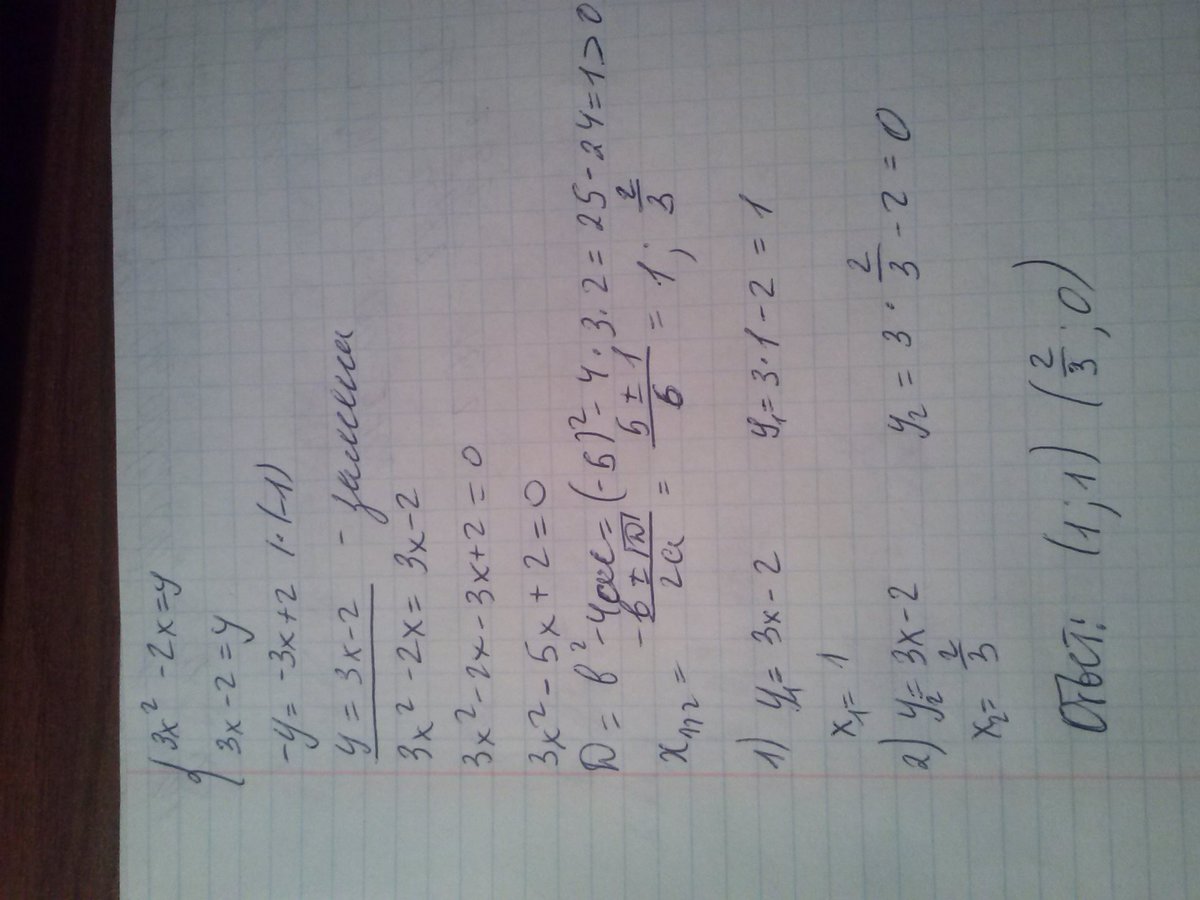 { 3x² - 2x = y
3x - 2 = y
-y = -3x + 2 | · (-1)
y = 3x - 2 - замена
3x² - 2x = 3x - 2
3x² - 2x - 3x + 2 = 0
3x² - 5x + 2 = 0
D = b² - 4ac = (-5)² - 4 · 3 · 2 = 25 - 24 = 1 > 0
x₁,₂ = (-b ± √D)/2a = (5 ± 1)/6 = 1; 2/3
1) y₁ = 3x - 2 y₁ = 3 · 1 - 2 = 1
x₁ = 1
2) y₂ = 3x - 2 y₂ = 3 · 2/3 - 2 = 0
x₂ = 2/3
Ответ: (1; 1) (2/3; 0)